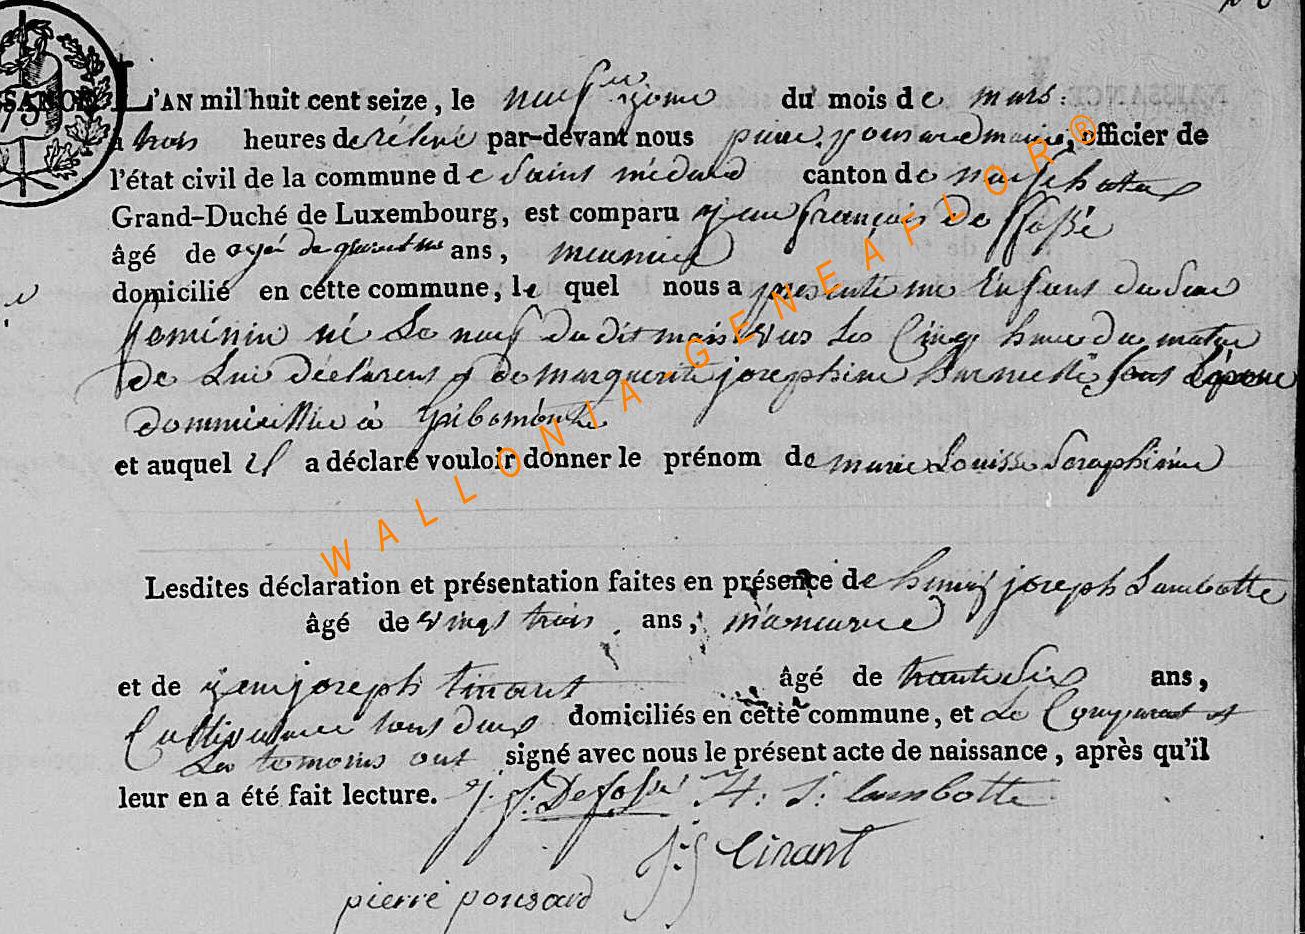 L'AN mil huit cent seize, le neufvizeme du mois de mars.
à trois heures de rélévé par-devant nous pierre ponsard maire, officier de
l'état civil de la commune de Saint médard canton de neufchatau
Grand-Duché de Luxembourg, est comparu jean françois De ffossé
âgé de agé de quarente ans, meunier
domicilié en cette commune, le quel nous a presenté une Enfant du Sexe
féminin né Le neuf du dit mois vers les Cinq heure du matin
de Lui déclarent et de marguerite josephine sont Epouse
dommicillié à Gribomont
et auquel il a déclaré vouloir donner le prénom de marie Louisse Seraphinne
Lesdites déclaration et présentation faites en présence de henrÿ joseph Lambotte
âgé de vingt trois ans, maneuvre
et de jean joseph tinant âgé de trante Six ans,
Cultivateur tous deux domiciliés en cette commune, et Le Comparant et
Les temoins ont signé avec nous le présent acte de naissance, après qu'il
leur en a été fait lecture. j. f. Defossé H: J: lambotte
j: j tinant
pierre ponsard
WALLONIA-GENEAFLOR®